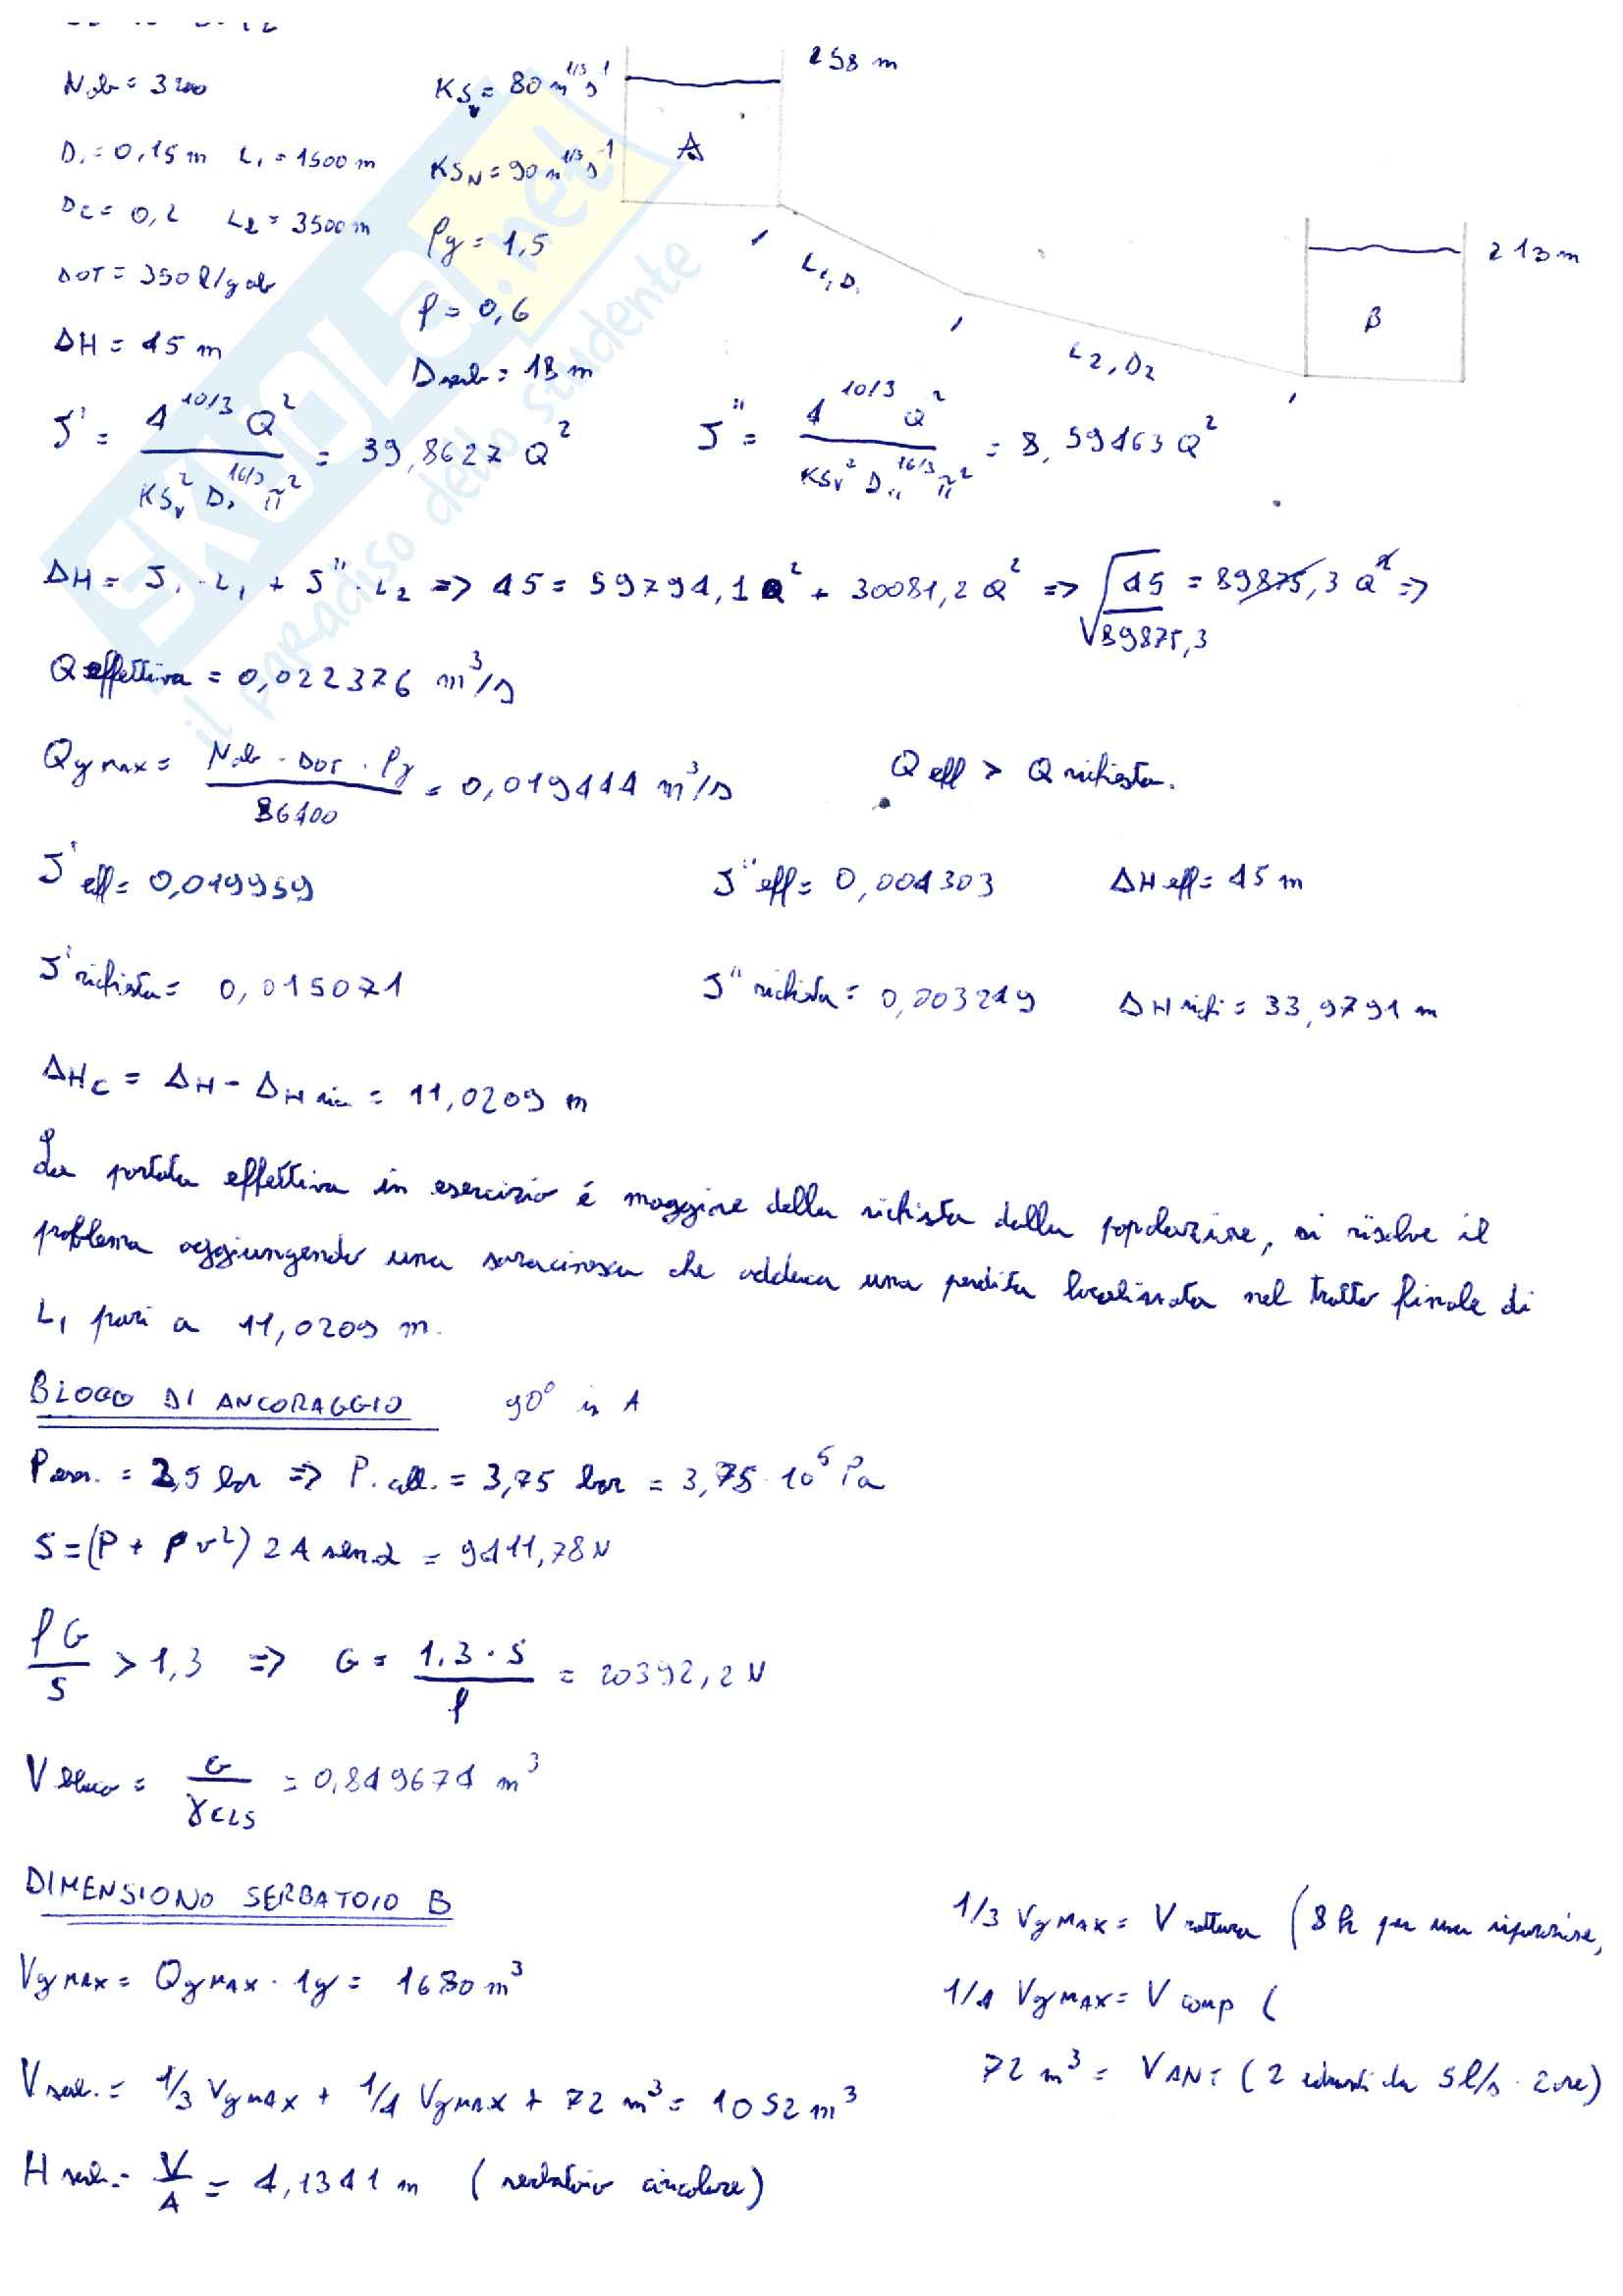 Nab = 3200
D₁ = 0,15 m L₁ = 1500 m
D₂ = 0,2 L₂ = 3500 m
DOT = 350 l/g ab
ΔH = 45 m
KSv = 80 m^1/3 s^-1
KSN = 90 m^1/3 s^-1
ρg = 1,5
f = 0,6
Dserb = 18 m
258 m
A
L₁, D₁
L2, D2
213 m
B
J' = 4^10/3 Q² / KSv² D,^16/3 π² = 39,8627 Q²
J" = 4^10/3 Q² / KSv² D,,^16/3 π² = 8,59463 Q²
ΔH = J, · L₁ + J" · L₂ => 45 = 59794,1 Q² + 30081,2 Q² => √45 / √89875,3 = 89875,3 Q² =>
Q effettiva = 0,022376 m³/s
Qg max = Nab · DOT · ρg / 86400 = 0,019444 m³/s
Q eff > Q richiesta.
J' eff = 0,019959
J" eff = 0,004303
ΔH eff = 45 m
J' richiesta = 0,015071
J" richiesta = 0,003249
ΔH rich = 33,9791 m
ΔHc = ΔH - ΔH ric = 11,0209 m
La portata effettiva in esercizio é maggiore della richiesta dalla popolazione, si risolve il
problema aggiungendo una saracinesca che adduca una perdita localizzata nel tratto finale di
L₁ pari a 11,0209 m.
BLOCO DI ANCORAGGIO 90° in A
P eser. = 2,5 bar => P. coll. = 3,75 bar = 3,75 · 10⁵ Pa
S = (P + ρ v²) 2 A sen α = 9411,78 N
f G / S > 1,3 => G = 1,3 · S / f = 20392,2 N
V bloco = G / γCLS = 0,849674 m³
DIMENSIONO SERBATOIO B
Vg MAX = Qg MAX · 1g = 1680 m³
V serb. = 1/3 Vg MAX + 1/4 Vg MAX + 72 m³ = 1052 m³
H serb. = V / A = 4,1341 m (serbatoio circolare)
1/3 Vg MAX = V rottura (8 h per una riparazione,
1/4 Vg MAX = V comp (
72 m³ = V ANT (2 idranti da 5 l/s · 2 ore)
SKUOLa.net
il paradiso dello studente